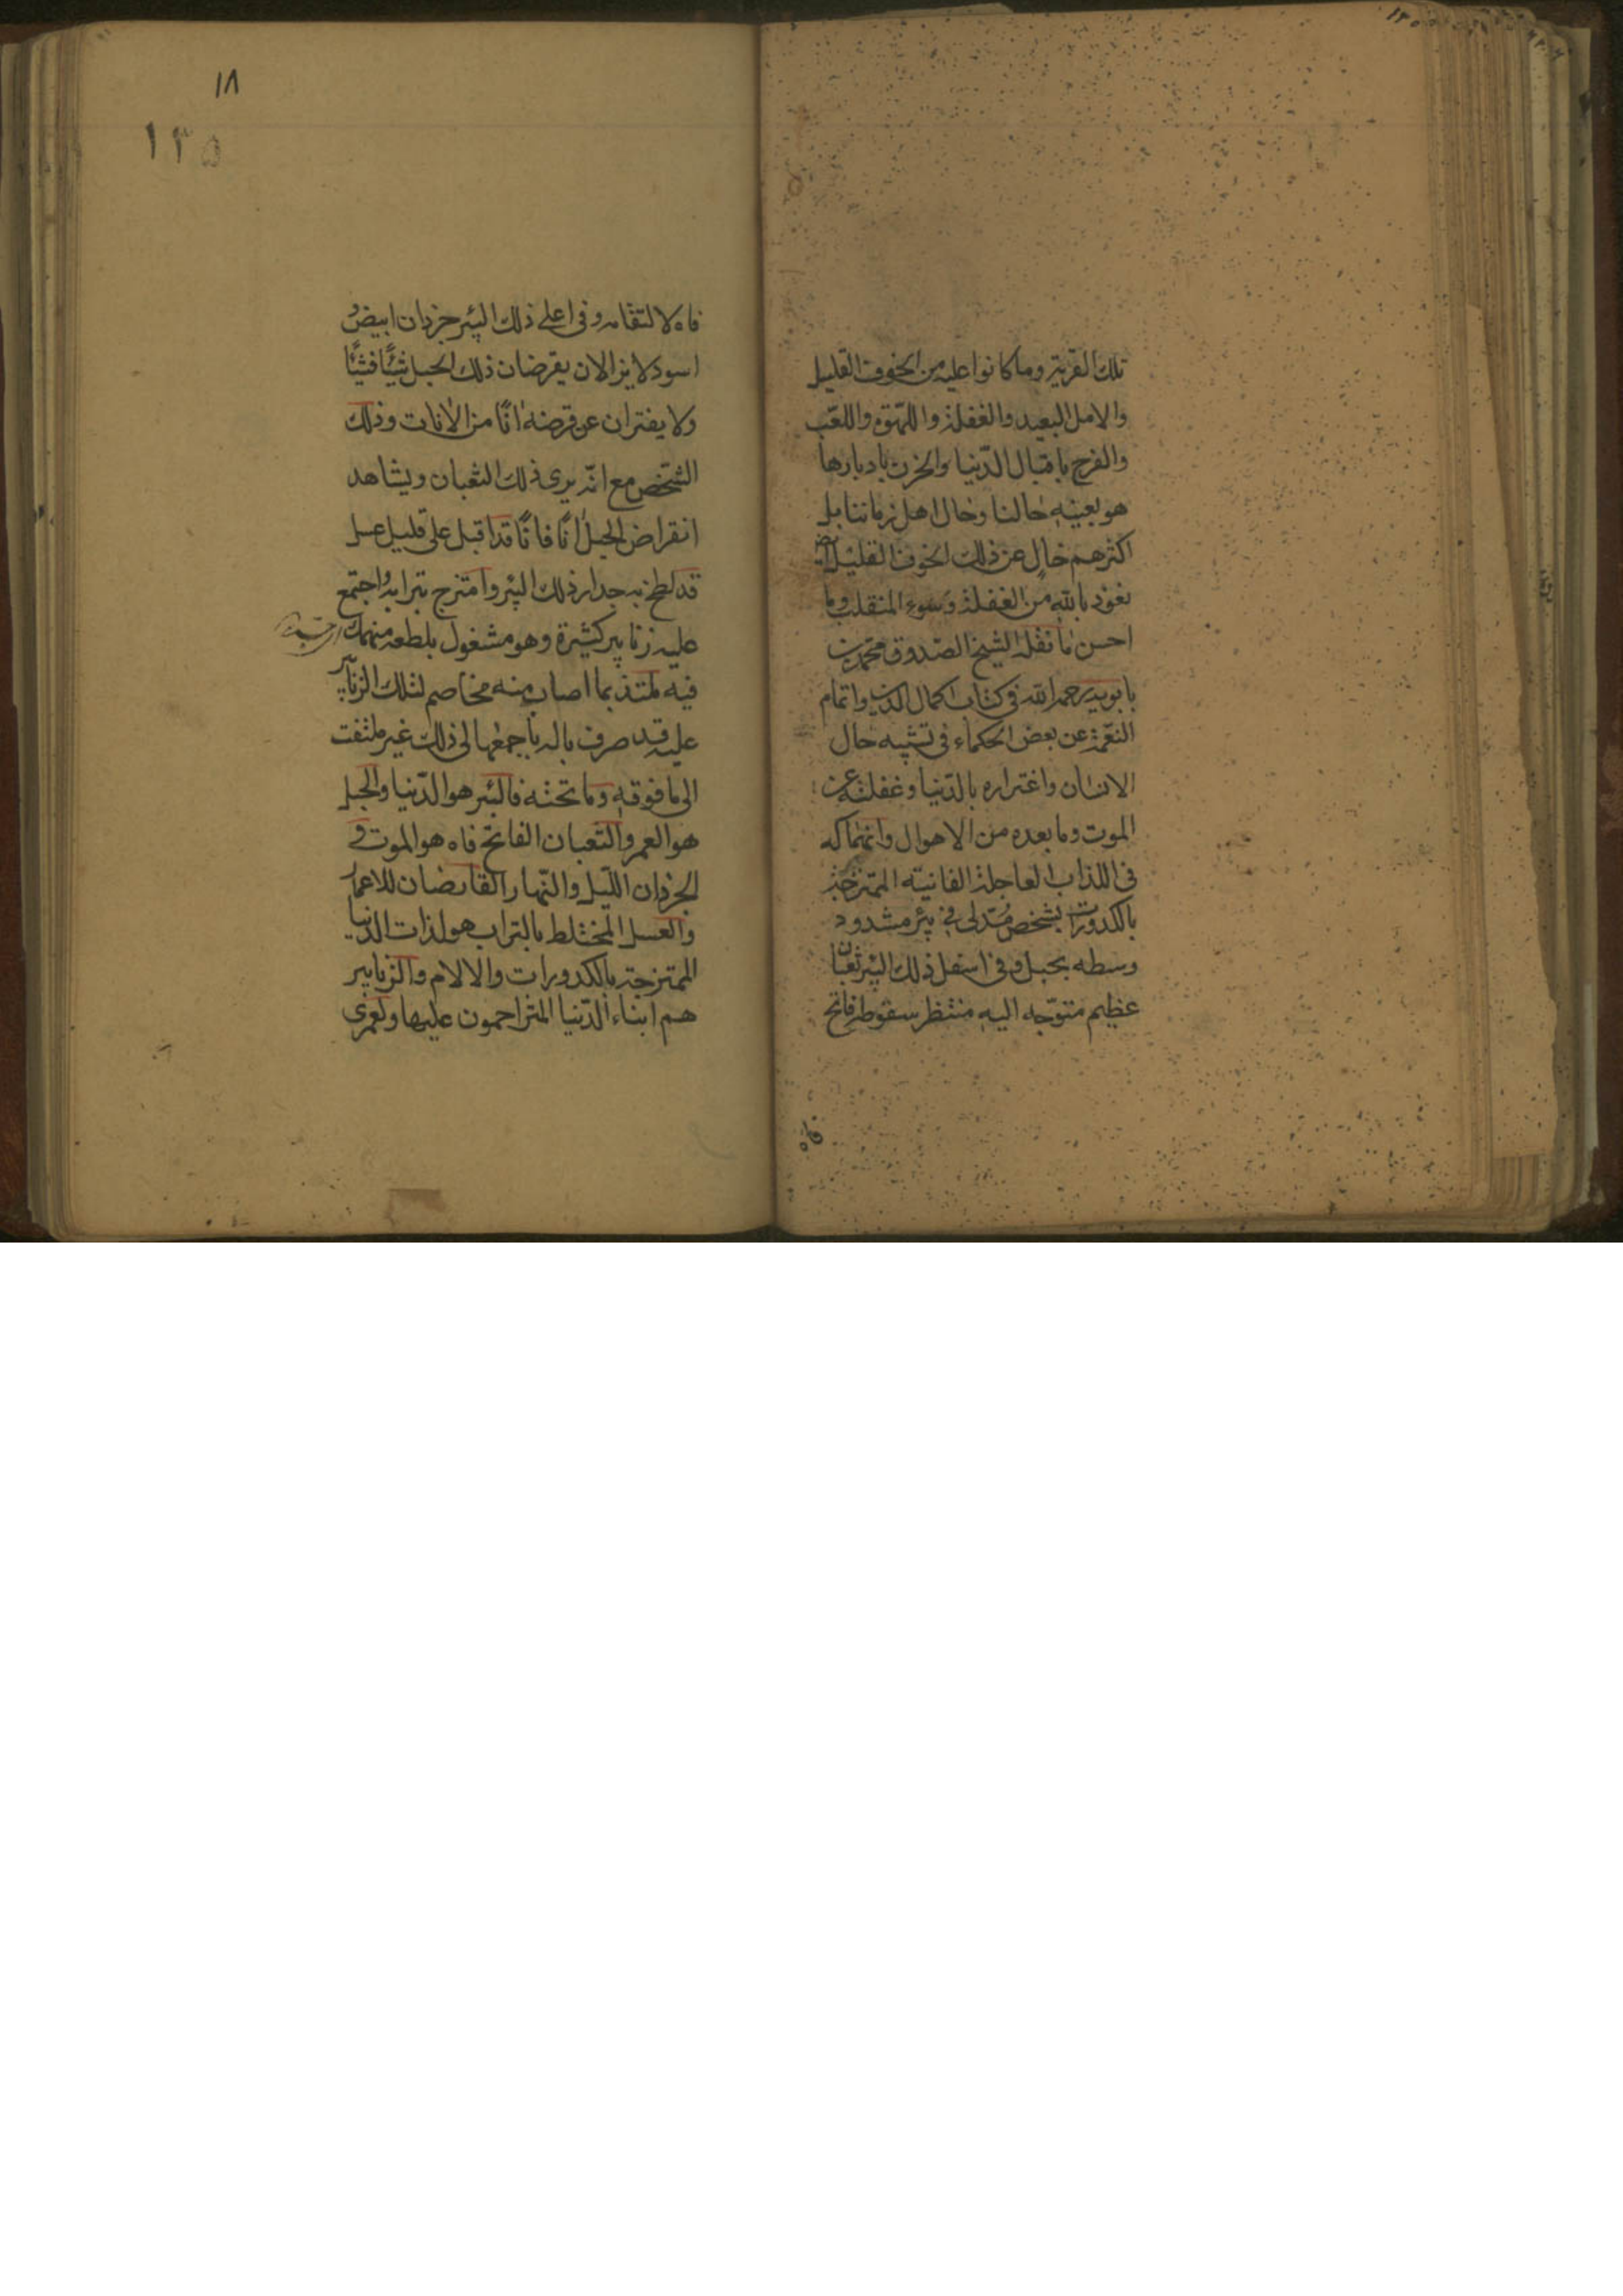 تلك القرية وما كانوا عليه من الخوف القليل
والامل البعيد والغفلة واللهو واللعب
والفرح باقبال الدّنيا والحزن بادبارها
هو بعينه حالنا وحال اهل زماننا بل
اكثرهم خالٍ عن ذلك الخوف القليل ايض
نعوذ بالله من الغفلة وسوء المنقلب وما
احسن ما نقله الشيخ الصّدوق محمد بن
بابويه رحمه الله في كتاب اكمال الدين واتمام
النعمة عن بعض الحكماء في تشبيه حال
الانسان واغتراره بالدّنيا وغفلته عن
الموت وما بعده من الاهوال وانهماكه
في اللذات العاجلة الفانيته الممتزجة
بالكدورات بشخص مُدّلى في بئر مشدود
وسطه بحبل وفي اسفل ذلك البئر ثعبان
عظيم متوّجه اليه منتظر سقوطه فاتح
فاه
١٨
١٣٥
فاه لالتقامه وفي اعلى ذلك البئر جرذان ابيض و
اسود لا يزالان يقرضان ذلك الحبل شيئًا فشيئًا
ولا يفتران عن قرضه انًا من الانات وذلك
الشّخص مع انّه يرى ذلك الثعبان ويشاهد
انقراض الحبل انًا فانًا قد اقبل على قليل عسل
قد لطخ به جدار ذلك البئر وامتزج بترابه واجتمع
عليه زنابير كثيرة وهو مشغول بلطعه منهمك
فيه ملتذ بما اصاب منه مخاصم لتلك الزنابير
عليه قد صرف باله باجمعها الى ذلك غير ملتفت
الى ما فوقه وما تحته فالبئر هو الدّنيا والحبل
هو العمر والثعبان الفاتح فاه هو الموت و
الجرذان اللّيل والنّهار القارضان للاعمار
والعسل المختلط بالتراب هو لذات الدنيا
الممتزجة بالكدورات والالام والزنابير
هم ابناء الدّنيا المتزاحمون عليها ولعمرى